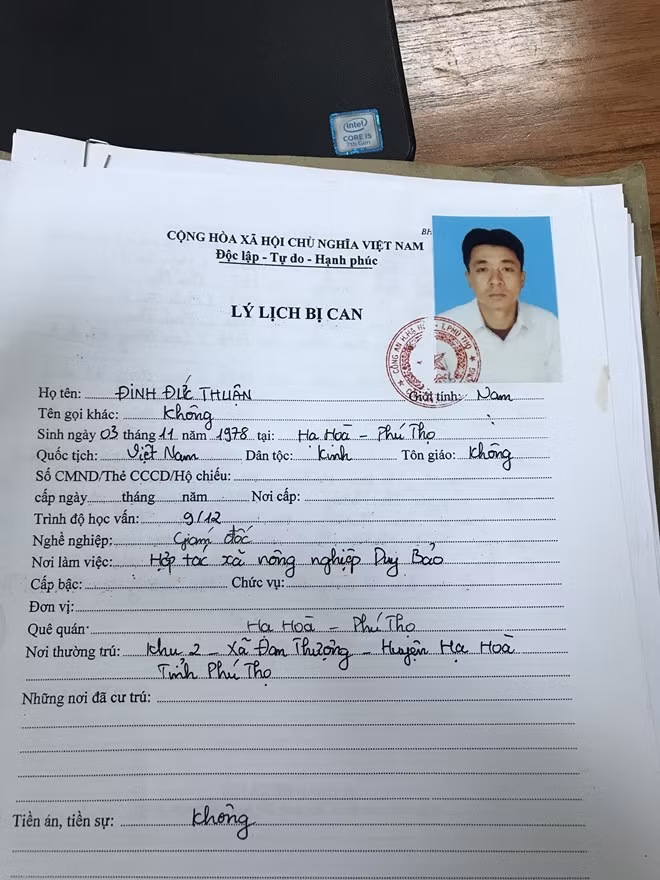 intel
CORE i5
7th Gen
BH
CỘNG HÒA XÃ HỘI CHỦ NGHĨA VIỆT NAM
Độc lập - Tự do - Hạnh phúc
LÝ LỊCH BỊ CAN
CÔNG AN H.HẠ T.PHÚ THỌ
Họ tên: ĐINH ĐỨC THUẬN Giới tính: Nam
Tên gọi khác: Không
Sinh ngày 03 tháng 11 năm 1978 tại: Hạ Hoà - Phú Thọ
Quốc tịch: Việt Nam Dân tộc: Kinh Tôn giáo: Không
Số CMND/Thẻ CCCD/Hộ chiếu:
cấp ngày tháng năm Nơi cấp:
Trình độ học vấn: 9/12
Nghề nghiệp: Giám đốc
Nơi làm việc: Hợp tác xã nông nghiệp Duy Bảo
Cấp bậc: Chức vụ:
Đơn vị:
Quê quán: Hạ Hoà - Phú Thọ
Nơi thường trú: Khu 2 - Xã Đan Thượng - Huyện Hạ Hoà
Tỉnh Phú Thọ
Những nơi đã cư trú:
Tiền án, tiền sự: Không